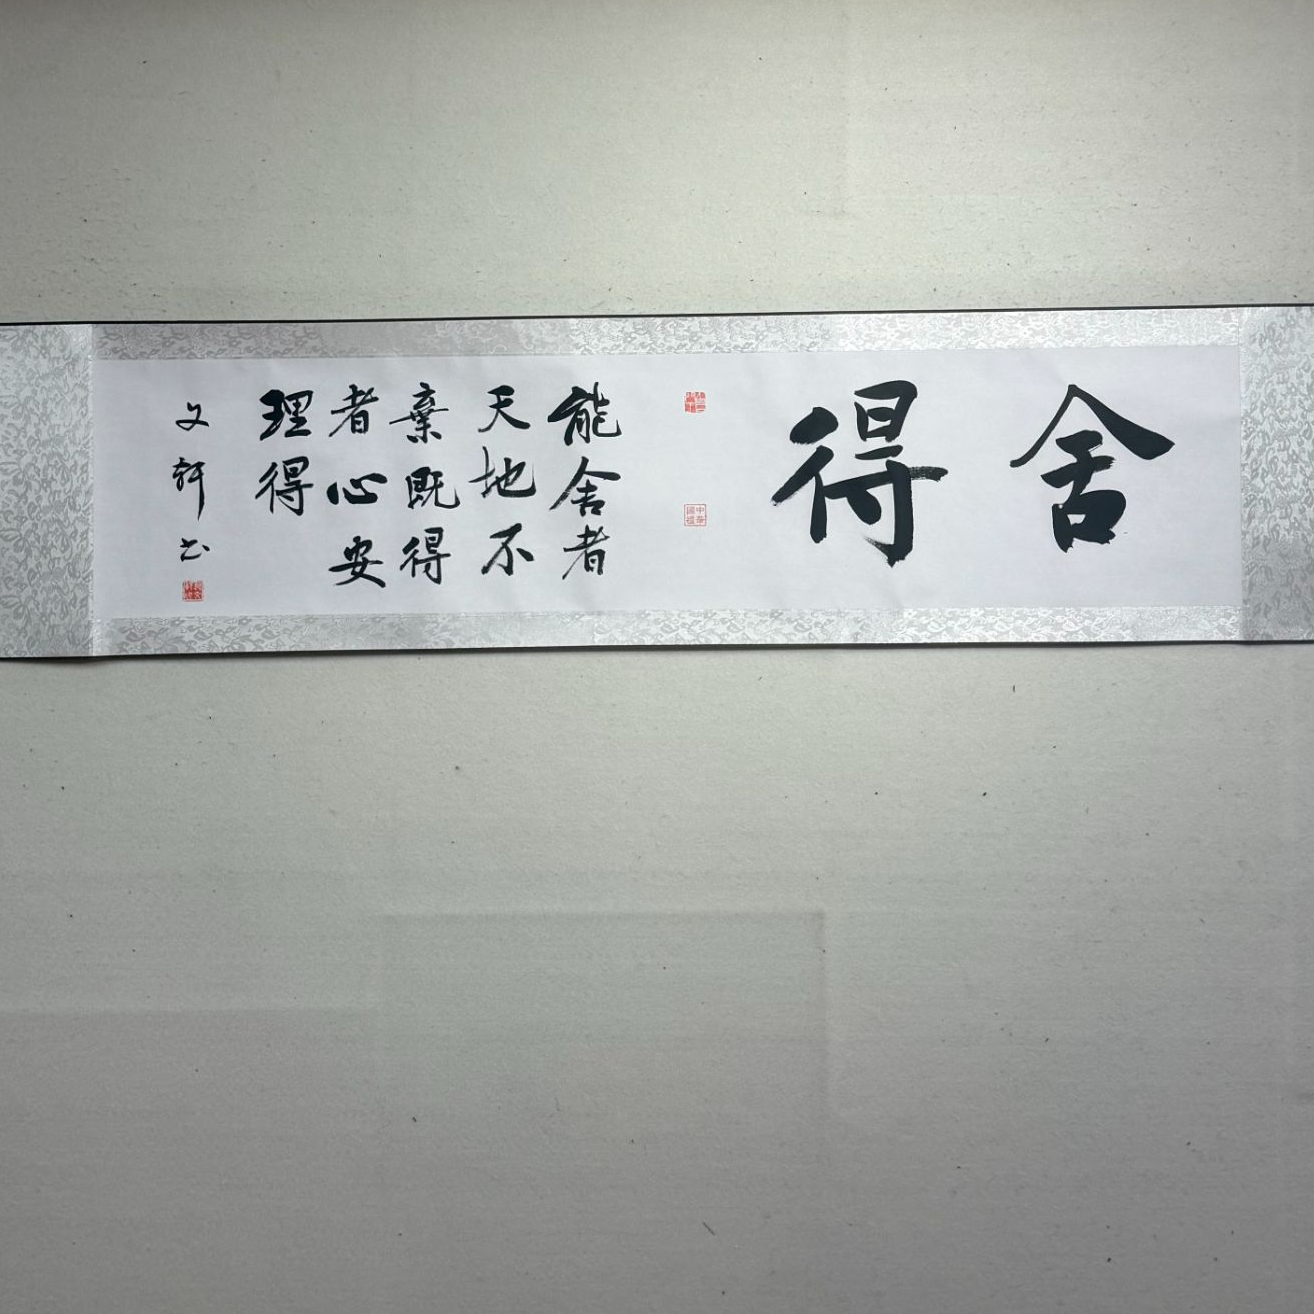 舍得
能舍者
天地不
棄既得
者心安
理得
文軒书